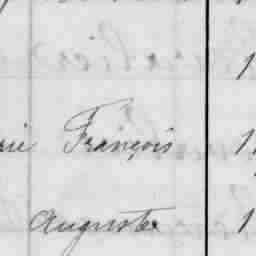 1
rie François 1
Auguste 1